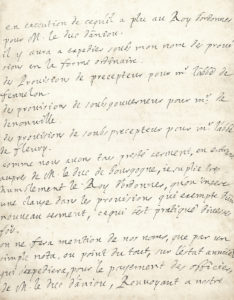 en execution de ce quil a plu au Roy dordonner
pour M. le duc danjou.
il y aura a expedier sous mon nom des provi
sions en la forme ordinaire.
de Provision de precepteur pour mr. labbé de
fenelon.
des provisions de sousgouverneur pour mr. de
denonville.
des provisions de sousprecepteur pour mr. labbé
de fleury.
comme nous auons tous presté serment, en
aupres de M. le duc de bourgogne, je suplie tres
humblement le Roy dordonner, qu'on insere
une clause dans les provisions qui exempte d'un
nouveau serment, cequi sest pratiqué diverses
fois.
on ne fera mention de nos noms, que par un
simple nota, ou point du tout, sur lestat
qui sexpediera, pour le payement des officiers
de M. le duc danjou, Renvoyant a notre